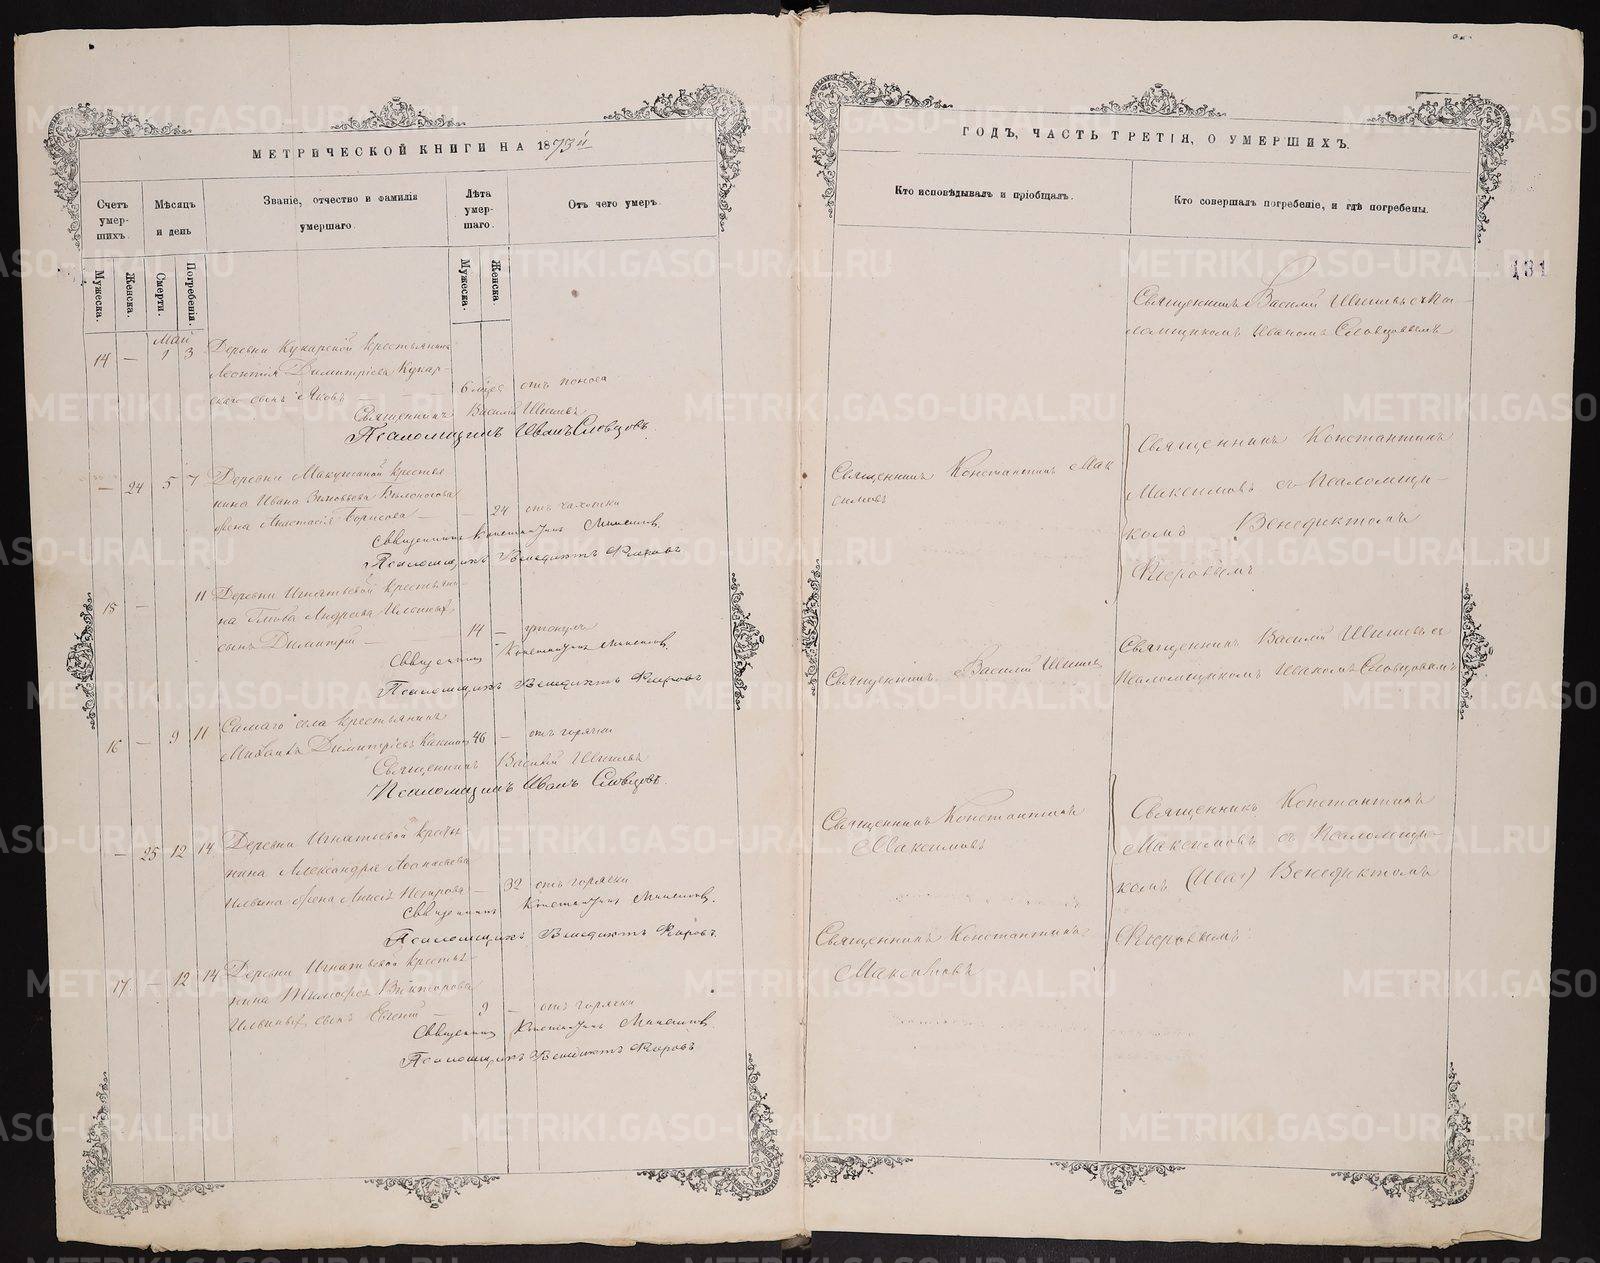 МЕТРИЧЕСКОЙ КНИГИ НА 1873й
Счетъ умер- шихъ.
Мѣсяцъ и день
Званіе, отчество и фамилія умершаго.
Лѣта умер- шаго.
Отъ чего умеръ.
Мужеска.
Женска.
Смерти.
Погребенія.
Мужеска.
Женска.
Май
14 — 1 3 Деревни Кукарской крестьянина
Леонтія Димитріева Кукар-
скаго сынъ Яковъ — 6 мѣс отъ поноса
Священникъ Василій
Псаломщикъ Иванъ Словцовъ.
— 24 5 7 Деревни крестья
нина Ивана Зиновьева Бѣлоносова
жена Анастасія Борисова — — 24 отъ чахотки
Священникъ Константинъ Максимовъ.
Псаломщикъ Венедиктъ Флеровъ
15 — 11 Деревни Игнатьевой крестьяни-
на Андреева Ильиныхъ
сынъ Димитрій — 14 — утонулъ
Священникъ Константинъ Максимовъ.
Псаломщикъ Венедиктъ Флеровъ
16 — 9 11 Самаго села крестьянинъ
Михаилъ Димитріевъ 46 — отъ горячки
Священникъ Василій
Псаломщикъ Иванъ Словцовъ.
— 25 12 14 Деревни Игнатьевой крестья
нина Александра Аѳанасьева
Ильина жена Анисія Петрова — 32 отъ горячки
Священникъ Константинъ Максимовъ.
Псаломщикъ Венедиктъ Флеровъ.
17. — 12 14 Деревни Игнатьевой крестья-
нина Тимофея Викторова
Ильиныхъ сынъ Евгеній — 9 — отъ горячки
Священникъ Константинъ Максимовъ
Псаломщикъ Венедиктъ Флеровъ
ГОДЪ, ЧАСТЬ ТРЕТІЯ, О УМЕРШИХЪ.
Кто исповѣдывалъ и пріобщалъ.
Кто совершалъ погребеніе, и гдѣ погребены.
181
Священникъ Василій съ Пса-
ломщикомъ Иваномъ Словцовымъ
Священникъ Константинъ Мак
симовъ
Священникъ Константинъ
Максимовъ съ Псаломщи-
комъ Венедиктомъ
Флеровымъ
Священникъ Василій
Священникъ Василій съ
Псаломщикомъ Иваномъ Словцовымъ
Священникъ Константинъ
Максимовъ
Священникъ Константинъ
Максимовъ съ Псаломщи-
комъ (Ива) Венедиктомъ
Флеровымъ
Священникъ Константинъ
Максимовъ
METRIKI.GASO-URAL.RU